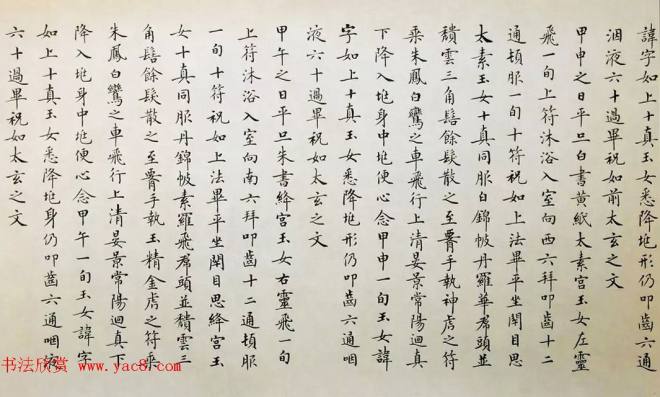 諱字如上十真玉女悉降地形仍叩齒六通
咽液六十過畢祝如前太玄之文
甲申之日平旦白書黃紙太素宮玉女左靈
飛一旬上符沐浴入室向西六拜叩齒十二
通頓服一旬十符祝如上法畢平坐閉目思
太素玉女十真同服白錦帔丹羅華帬頭並
積雲三角髻餘髮散之至腰手執神虎之符
乘朱鳳白鸞之車飛行上清晏景常陽迴真
下降入地身中地便心念甲申一旬玉女諱
字如上十真玉女悉降地形仍叩齒六通咽
液六十過畢祝如太玄之文
甲午之日平旦朱書絳宮玉女右靈飛一旬
上符沐浴入室向南六拜叩齒十二通頓服
一旬十符祝如上法畢平坐閉目思絳宮玉
女十真同服丹錦帔素羅飛帬頭並積雲三
角髻餘髮散之至腰手執玉精金虎之符乘
朱鳳白鸞之車飛行上清晏景常陽迴真下
降入地身中地便心念甲午一旬玉女諱字
如上十真玉女悉降地身仍叩齒六通咽液
六十過畢祝如太玄之文
书法欣赏 www.yac8.com